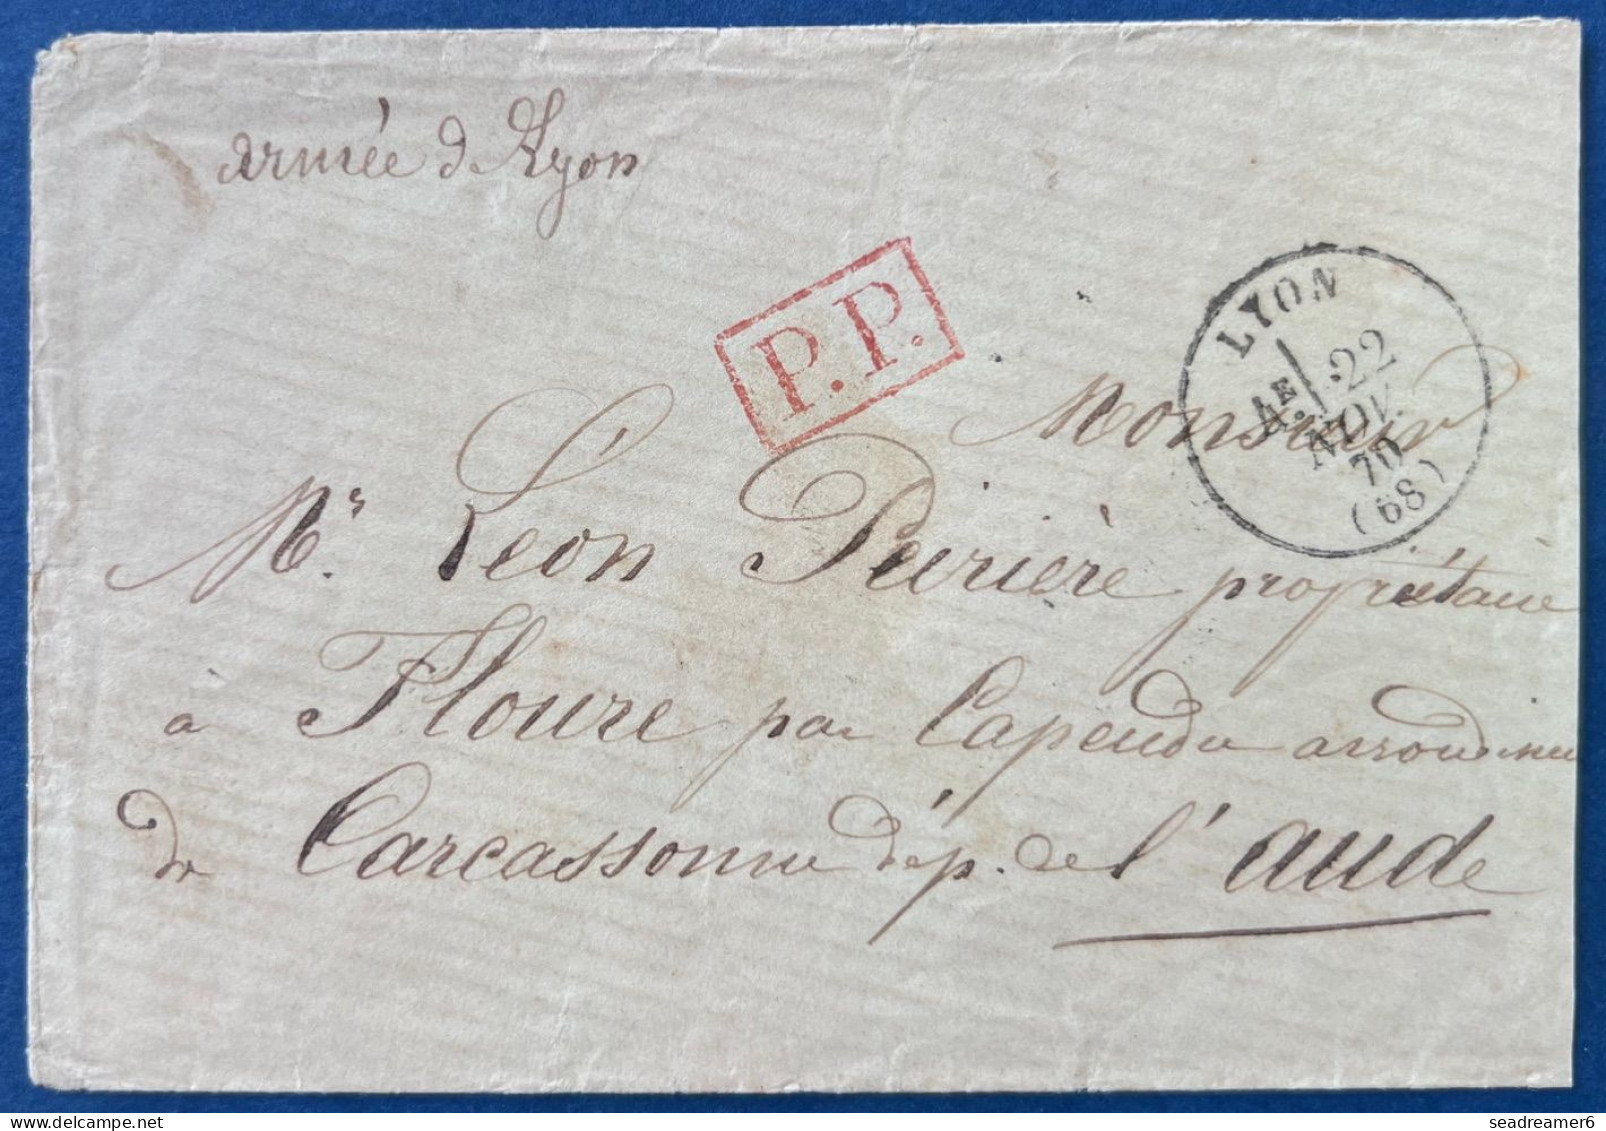 Armée de Lyon
P.P.
LYON
4E. 22
NOV.
70
(68)
Monsieur
Mr. Léon Peirière propriétaire
à Floure par Capendu arrondisme
de Carcassonne dép. de l'aude
seadreamer6